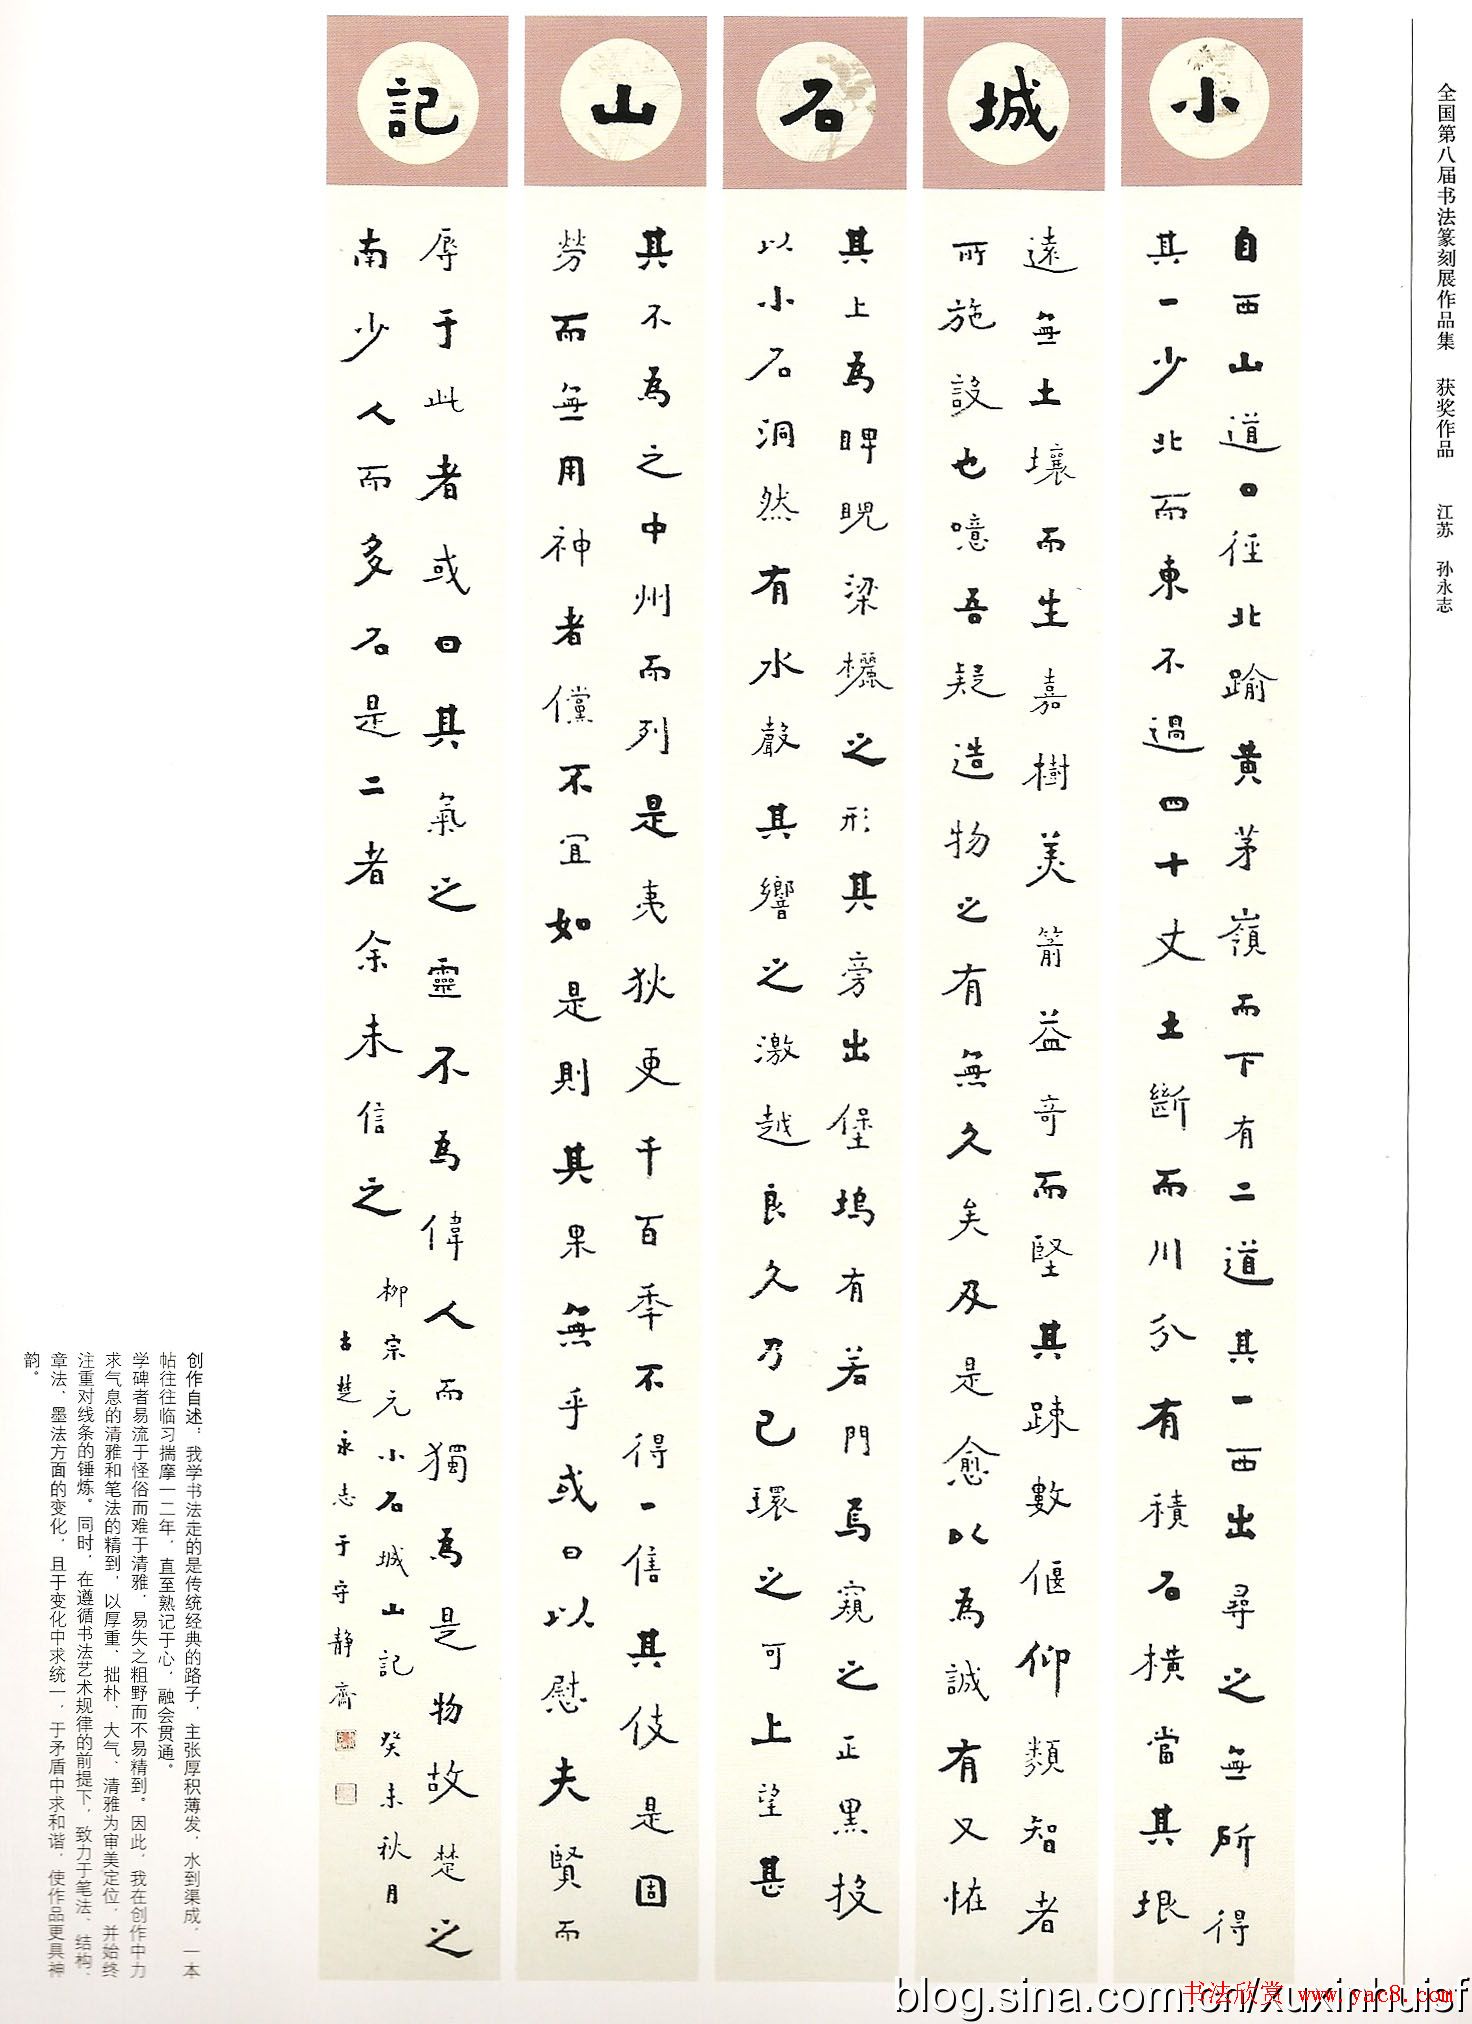 全国第八届书法篆刻展作品集 获奖作品 江苏 孙永志
小城石山記
自西山道口徑北踰黃茅嶺而下有二道其一西出尋之無所得
其一少北而東不過四十丈土斷而川分有積石橫當其垠
遠無土壤而生嘉樹美箭益奇而堅其疎數偃仰類智者
所施設也噫吾疑造物之有無久矣及是愈以為誠有又怪
其上為睥睨梁欐之形其旁出堡塢有若門焉窺之正黑投
以小石洞然有水聲其響之激越良久乃已環之可上望甚
其不為之中州而列是夷狄更千百年不得一售其伎是固
勞而無用神者儻不宜如是則其果無乎或曰以慰夫賢而
辱于此者或曰其氣之靈不為偉人而獨為是物故楚之
南少人而多石是二者余未信之
柳宗元小石城山記 癸未秋月
古楚永志于守靜齋
创作自述，我学书法走的是传统经典的路子，主张厚积薄发，水到渠成，一本
帖往往临习揣摩一二年，直至熟记于心，融会贯通。
学碑者易流于怪俗而难于清雅，易失之粗野而不易精到。因此，我在创作中力
求气息的清雅和笔法的精到，以厚重、拙朴、大气、清雅为审美定位，并始终
注重对线条的锤炼。同时，在遵循书法艺术规律的前提下，致力于笔法、结构、
章法、墨法方面的变化，且于变化中求统一，于矛盾中求和谐，使作品更具神
韵。
blog.sina.com.cn/xuxinhuisf
书法欣赏 www.yac8.com